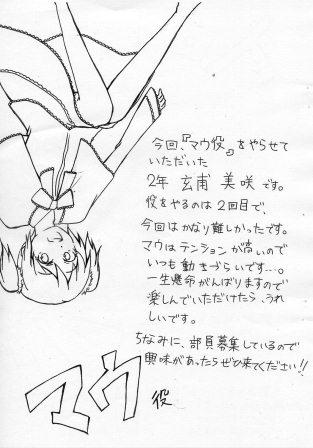 今回、『マウ役』をやらせて
いただいた
2年 玄甫 美咲です。
役をやるのは2回目で、
今回はかなり難しかったです。
マウはテンションが高いので
いつも動きづらいです…。
一生懸命がんばりますので
楽しんでいただけたら、うれ
しいです。
ちなみに、部員募集しているので
興味があったらぜひ来てください!!
マウ役